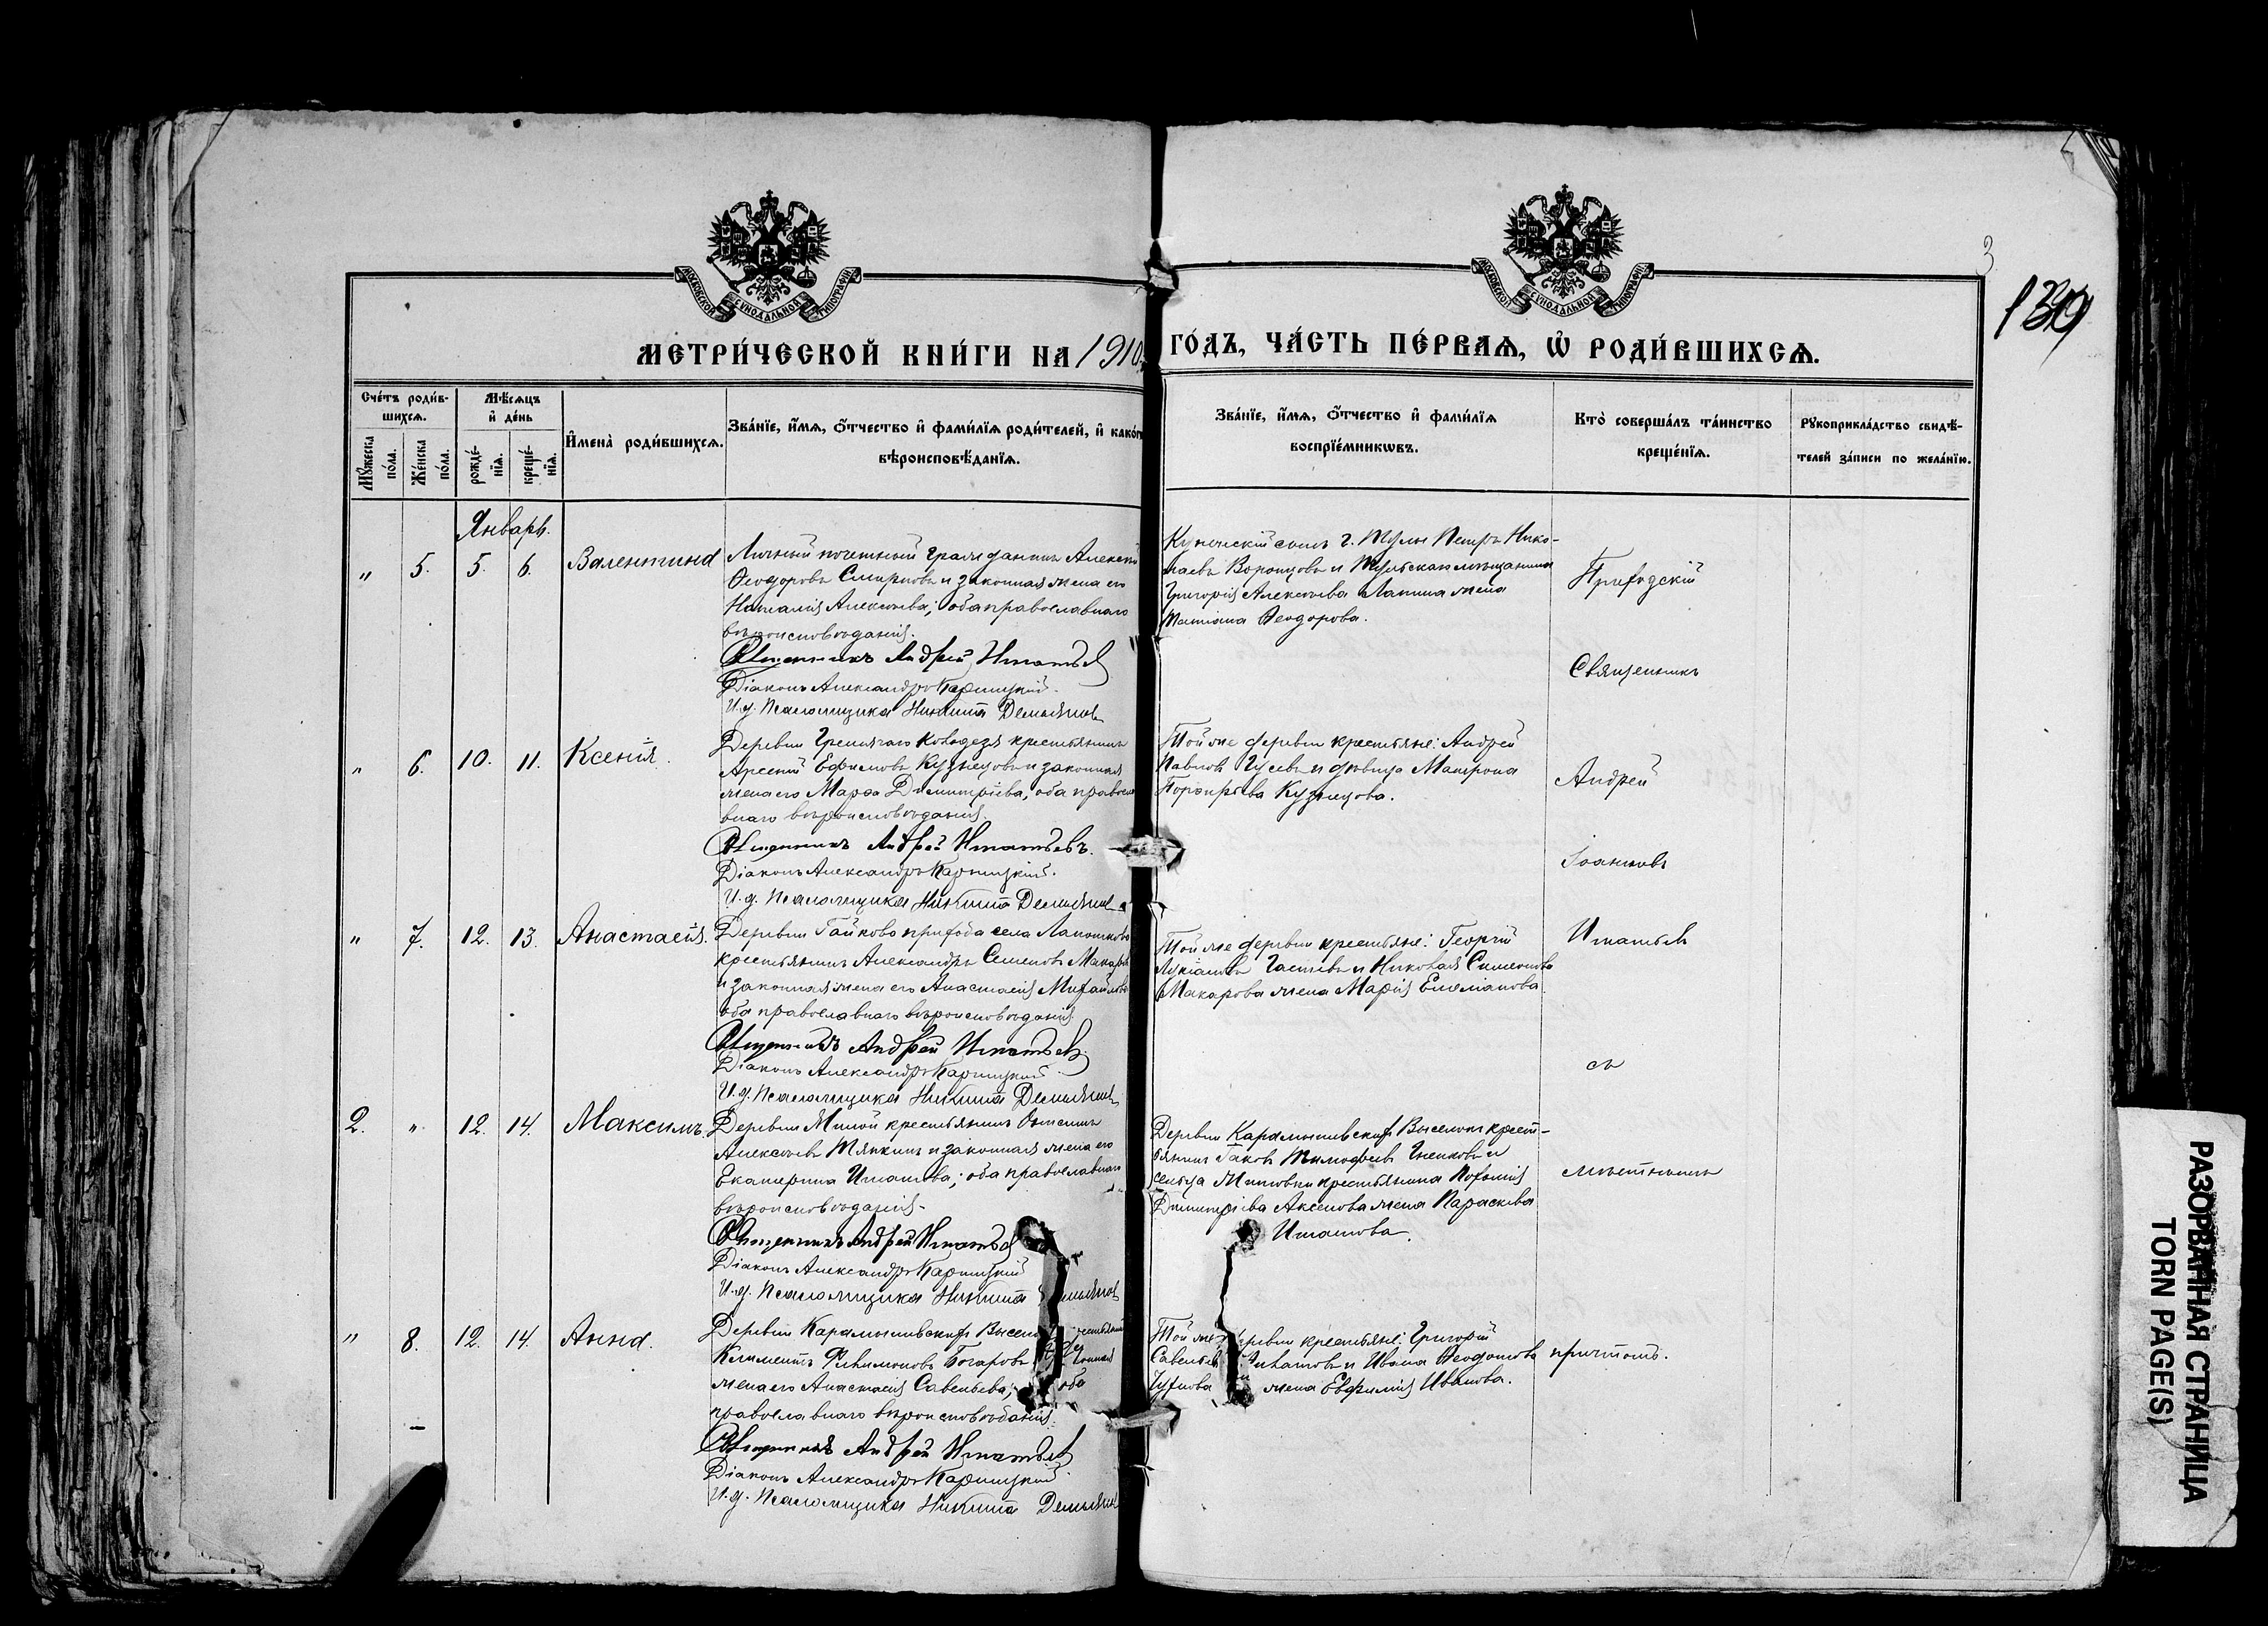 МОСКОВСКОЙ СѴНОДАЛЬНОЙ ТИПОГРАФІИ
МОСКОВСКОЙ СѴНОДАЛЬНОЙ ТИПОГРАФІИ
3
МЕТРИ́ЧЕСКОЙ КНИ́ГИ НА 1910 ГО́ДЪ, ЧА́СТЬ ПЕ́РВАѦ, Ѡ҆ РОДИ́ВШИХСѦ.
Сче́тъ роди́в-
шихсѧ.
Мѣ́сѧцъ
и҆ де́нь
Мꙋ́жеска по́ла.
Же́нска по́ла.
рожде́-нїѧ.
креще́-нїѧ.
И҆мена̀ роди́вшихсѧ.
Зва́нїе, и҆́мѧ, ѻ҆́тчество и҆ фами́лїѧ роди́телей, и҆ како́гѡ
вѣроисповѣ́данїѧ.
Зва́нїе, и҆́мѧ, ѻ҆́тчество и҆ фами́лїѧ
воспрїе́мникѡвъ.
Кто̀ соверша́лъ та́инство
креще́нїѧ.
Рꙋкоприкла́дство свидѣ́-
телей за́писи по жела́нїю.
Январь.
" 5. 5. 6. Валентина
Личный почетный гражданинъ Алексѣй
Ѳеодоровъ Смирновъ и законная жена его
Наталія Алексѣева; оба православнаго
вѣроисповѣданія.
Священникъ Андрей Игнатьевъ
Діаконъ Александръ Карницкій.
И.д. Псаломщика Никита Демьяновъ
Купеческій сынъ г. Тулы Петръ Нико-
лаевъ Воронцовъ и Тульскаго мѣщанина
Григорія Алексѣева Лапина жена
Татіана Ѳеодорова.
Приходскій
Священникъ
" 6. 10. 11. Ксенія.
Деревни Гремячаго Колодезя крестьянинъ
Арсеній Ефимовъ Кузнецовъ и законная
жена его Марѳа Димитріева, оба правосла
внаго вѣроисповѣданія.
Священникъ Андрей Игнатьевъ.
Діаконъ Александръ Карницкій.
И.д. Псаломщика Никита Демьяновъ
Той же деревни крестьяне: Андрей
Павловъ Гусевъ и дѣвица Матрона
Порфирьева Кузнецова.
Андрей
Іоанновъ
" 7. 12. 13. Анастасія.
Деревни Гайково прихода села Лапотково
крестьянинъ Александръ Семеновъ Макаровъ
и законная жена его Анастасія Михайлова
оба православнаго вѣроисповѣданія.
Священникъ Андрей Игнатьевъ
Діаконъ Александръ Карницкій.
И.д. Псаломщика Никита Демьяновъ
Той же деревни крестьяне: Георгій
Лукіановъ и Николая Симеонова
Макарова жена Марія Емеліанова.
Игнатьевъ
съ
2. " 12. 14. Максимъ.
Деревни крестьянинъ
Алексѣевъ Тяпкинъ и законная жена его
Екатерина Игнатова; оба православнаго
вѣроисповѣданія.
Священникъ Андрей Игнатьевъ
Діаконъ Александръ Карницкій
И.д. Псаломщика Никита Демьяновъ
Деревни Карамышевскихъ Выселокъ крест-
ьянинъ Іаковъ Тимофеевъ и
сельца крестьянина
Димитріева Аксенова жена Параскева
Игнатова.
мѣстнымъ
" 8. 12. 14. Анна.
Деревни Карамышевскихъ Высел крестьянинъ
Климентъ Филимоновъ Бочаровъ и законная
жена его Анастасія Савельева; оба
православнаго вѣроисповѣданія.
Священникъ Андрей Игнатьевъ
Діаконъ Александръ Карницкій.
И.д. Псаломщика Никита Демьяновъ
Той же деревни крестьяне: Григорій
Савельевъ и Ивана Ѳеодотова
жена Евфимія Иванова.
причтомъ.
РАЗОРВАННАЯ СТРАНИЦА
TORN PAGE(S)